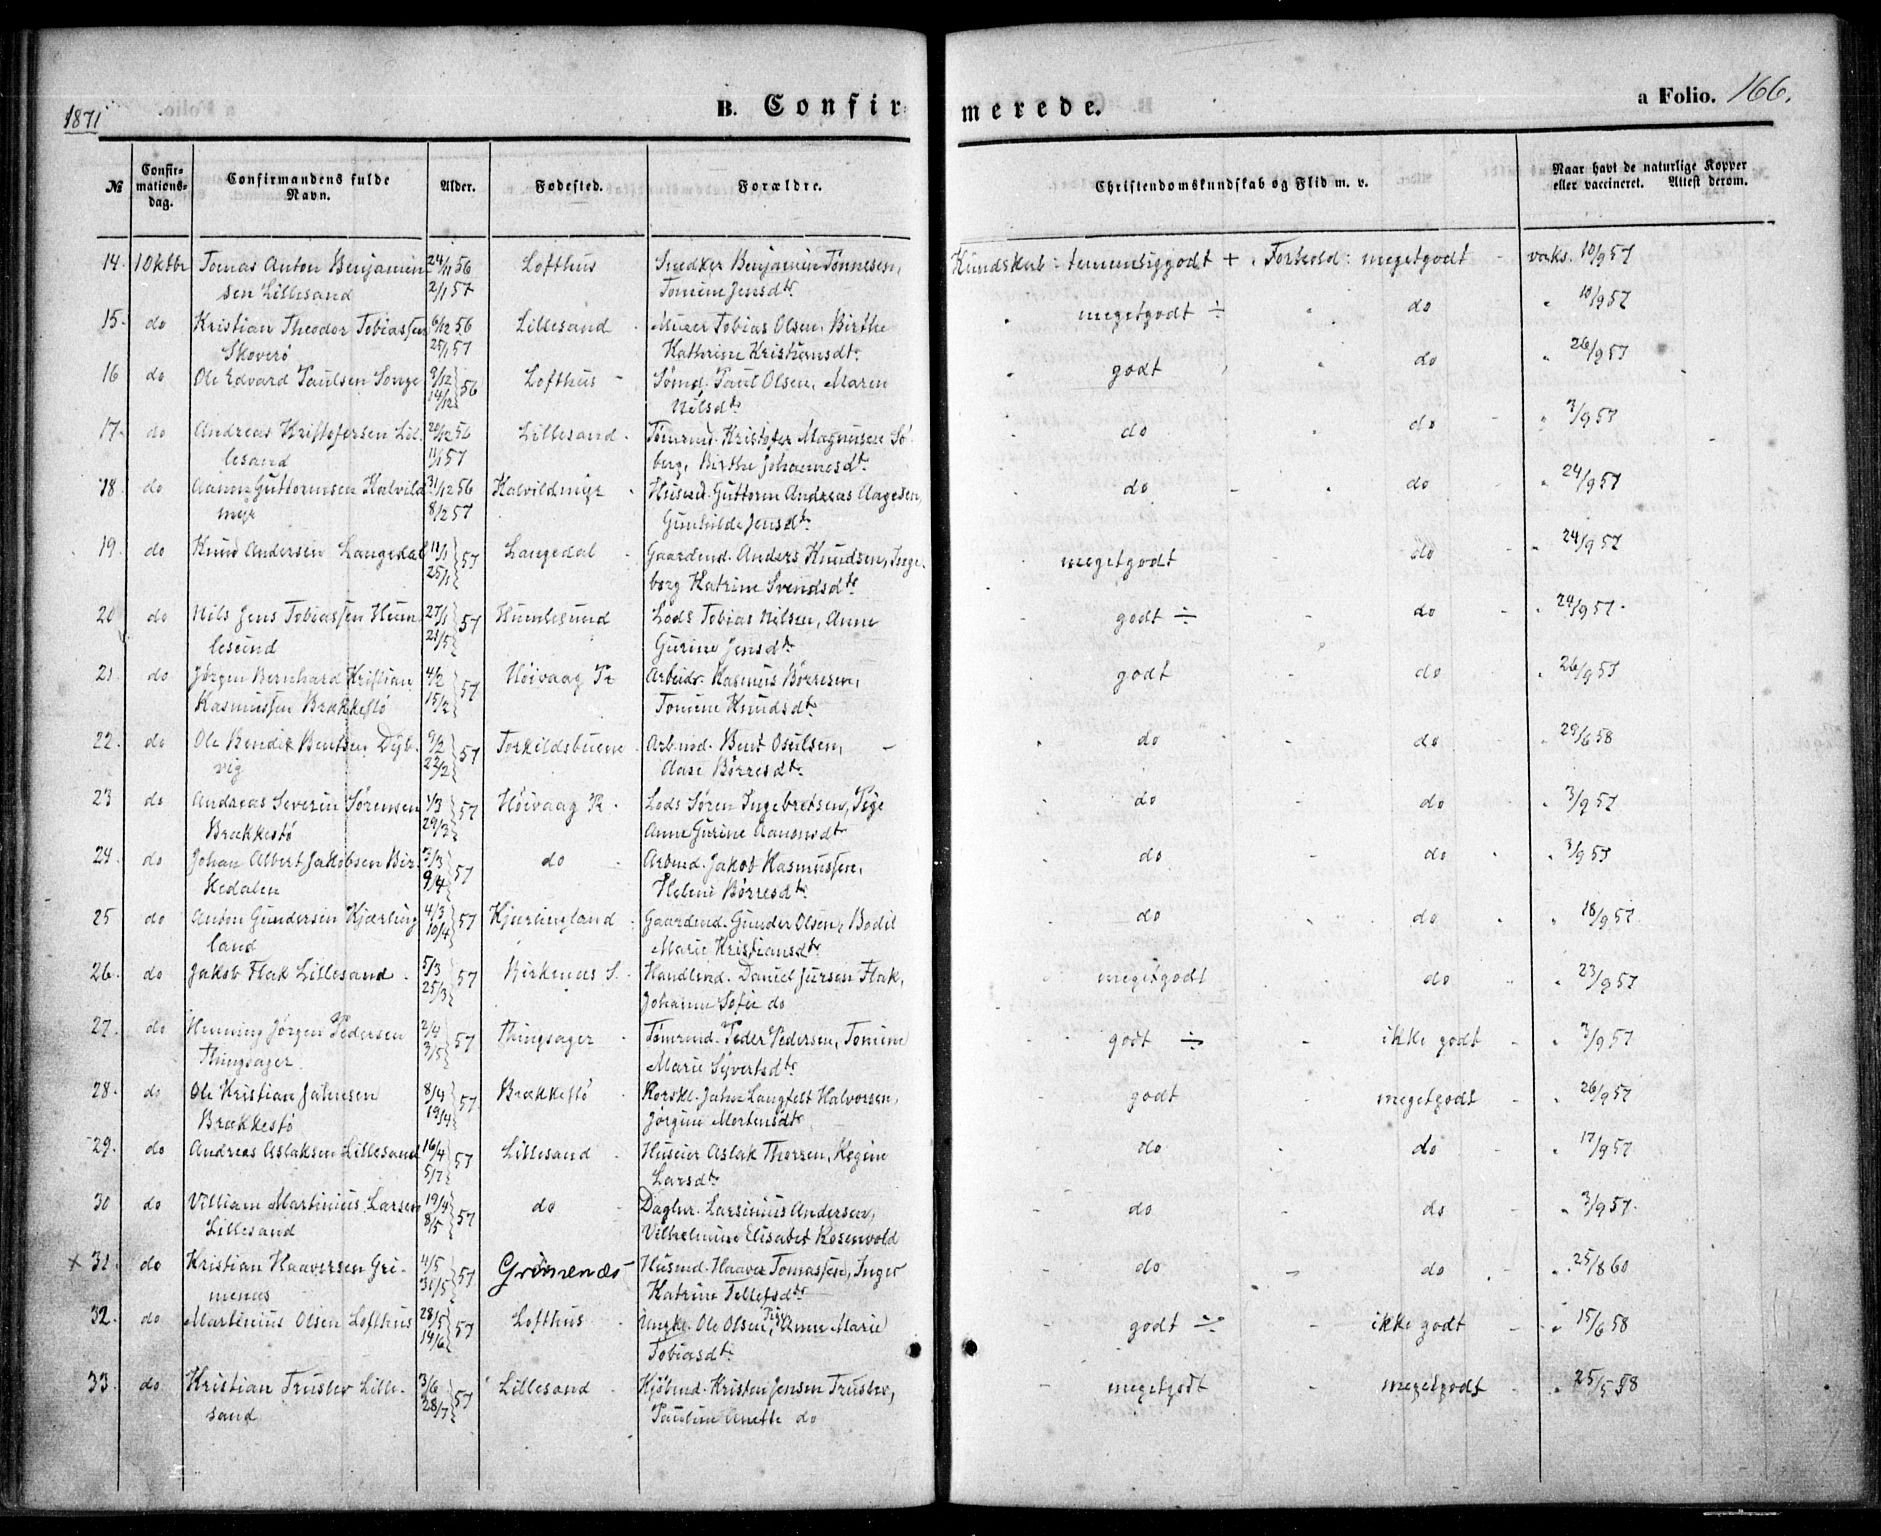 1871
B. Confirmerede.
a Folio. 166.
№
Confirmations-dag.
Confirmandens fulde Navn.
Alder.
Fødested.
Forældre.
Christendomskundskab og Flid m. v.
Naar havt de naturlige Kopper eller vaccineret. Attest derom.
14. 1 Oktbr Tomas Anton Benjamin 24/11 56 Lofthus Snedker Benjamin Tønnesen, Kundskab: temmeliggodt + . Forhold: megetgodt - vaks. 10/9 57
sen Lillesand 2/1 57 Tomine Jensdtr
15. do Kristian Theodor Tobiassen 9/12 56 Lillesand Murer Tobias Olsen, Birthe megetgodt ÷ " do " 10/9 57
Skoverö 25/1 57 Kathrine Kristiansdtr
16 do Ole Edvard Paulsen Songe 9/12 56 Lofthus - Sømd. Paul Olsen, Maren godt " do " 26/9 57
14/12 Nilsdtr
17. do Andreas Kristofersen Lil- 20/12 56 Lillesand. Tømrmd. Kristofer Magnusen Sö- do do " 3/9 57
lesand 11/1 57 berg, Birthe Johannesdtr
18. do Aanon Guttormsen Kalvild 31/12 56 Kalvildmyr Husmd. Guttorm Andreas Aagesen, do - do " 24/9 57
myr 8/2 57 Gunhilde Jensdtr
19. do Knud Andersen Langedal 11/1 57 Langedal Gaardmd. Anders Knudsen, Inge- megetgodt do " 24/9 57
25/1 borg Katrine Svendsdtr
20 do Nils Jens Tobiassen Hum 27/1 57 Humlesund Lods Tobias Nilsen, Anne godt ÷ do " 24/9 57.
lesund 21/5 Gurine Jensdtr
21 do Jørgen Bernhard Kristian 4/2 57 Höivaag Pr Arbeidr. Rasmus Børresen, godt do " 26/9 57
Rasmussen Brækkestö 15/2 Tomine Knudsdtr
22. do Ole Bendik Bentsen Dyb- 9/2 57 Torkildsbuene Arb.md. Bent Osulsen, do do " 29/6 58
vig 22/2 Aase Børresdtr
23 do Andreas Severin Sørensen 1/3 57 Höivaag Pr. Lods Søren Ingebretsen, Pige do - do " 3/9 57
Brækkestö 29/3 Anne Gurine Aanonsdtr
24. do Johan Albert Jakobsen Bir- 3/3 57 do Arbmd. Jakob Rasmussen, do - do " 3/9 57
kedalen 9/4 Helene Børresdtr
25 do Anton Gundersen Kjærling 4/3 57 Kjærlingland Gaardmd. Gunder Olsen, Bodil do do " 18/9 57
land 10/4 Marie Kristiansdtr
26. do Jakob Flak Lillesand. 5/3 57 Birkenæs S. Handlmd. Daniel Jursen Flak, megetgodt do " 23/9 57
25/3 Johanne Sofie do
27. do Henning Jørgen Pedersen 2/4 57 Thingsager Tømrmd. Peder Pedersen, Tomine godt ÷ - ikke godt - " 3/9 57
Thingsager. 3/5 Marie Syvertsdtr
28. do Ole Kristian Jahnsen 8/4 57 Brækkestö Jahn Langfelt Halvorsen, godt megetgodt - " 26/9 57
Brækkestö 19/4 Jørgine Mortensdtr
29. do Andreas Aslaksen Lillesand 16/4 57 Lillesand Huseier Aslak Thorsen, Regine do - do " 17/9 57
5/7 Larsdtr
30 do Villiam Martinius Larsen 19/4 57 do Daglnr. Larsinius Andersen, do do " 3/9 57.
Lillesand 8/5 Vilhelmine Elisabet Rosenvold
× 31. do Kristian Haaversen Gri- 4/5 57 Grømenæs Husmd. Haaver Tomassen, Inger do - do " 25/8 60
menæs 30/5 Katrine Tellefsdtr
32. do Martinius Olsen Lofthus 28/5 57 Lofthus Ungk. Ole Olsen, Pige Anne Marie godt ÷ - ikke godt - " 15/6 58
14/6 Tobiasdtr
33. do Kristian Truslev Lille- 3/6 57 Lillesand Kjöbmd. Kristen Jensen Truslev, megetgodt - megetgodt - " 25/5 58
sand 28/7 Pauline Anette do